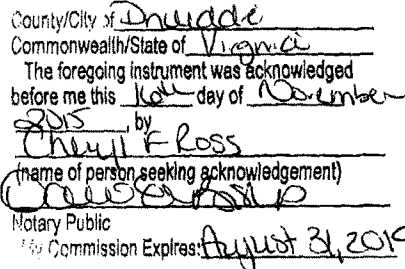 County/City of Dinwiddie
Commonwealth/State of Virginia
The foregoing instrument was acknowledged
before me this 16th day of November
2015, by
Cheryl F Ross
(name of person seeking acknowledgement)
Notary Public
My Commission Expires: August 31, 201